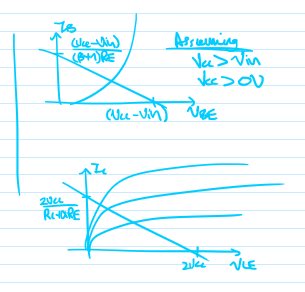 IB
(Vcc-Vin)
(β+1)RE
(Vcc-Vin)
VBE
Assuming
Vcc > Vin
Vcc > 0V
Ic
2Vcc
2Vcc
VCE